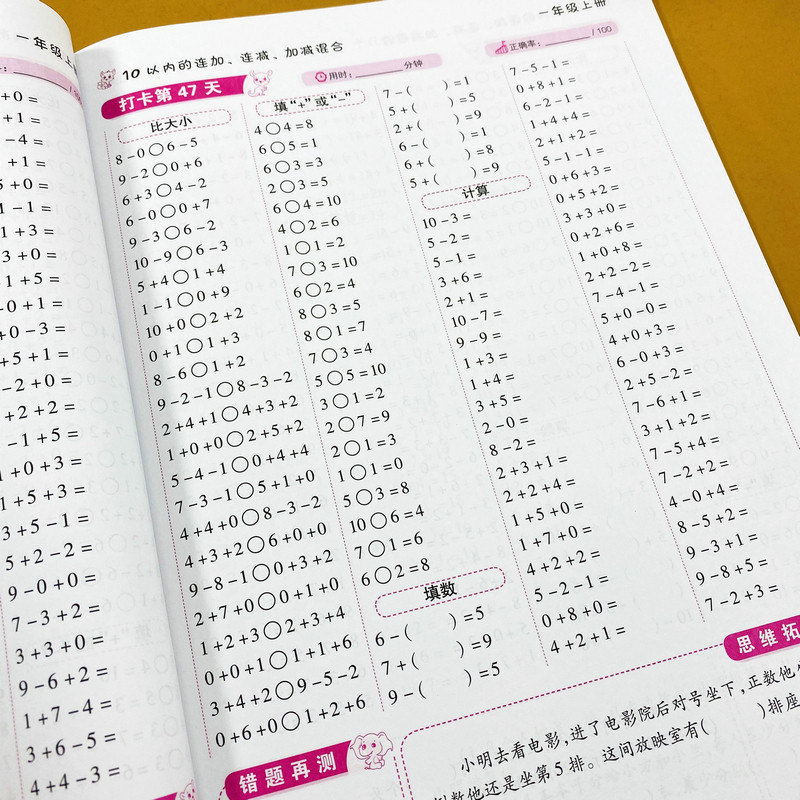 一年级上
+0=
+1=
-4=
+1=
5+0=
1-1=
1+3=
3+0=
1+5=
-0+1=
+0-3=
+5+1=
-2+0=
+2+2=
-1+5=
1+0+3=
1+5+3=
3+5-1=
5+2-2=
9-0+0=
7-3+2=
3+3+0=
9-6+2=
1+7-4=
3+6-5=
4+4-3=
10以内的连加、连减、加减混合
一年级上册
打卡第47天
用时：______分钟
正确率：______/100
比大小
8-0○6-5
9-2○0+6
6+3○4-2
6-0○0+7
9-3○6-2
10-9○6-3
5+4○1+4
1-1○0+9
10+0○2+2
0+1○1+3
8-6○1+2
9-2-1○8-3-2
2+4+1○4+3+2
1+0+0○2+5+2
5-4-1○0+4+4
7-3-1○5+1+0
4+4+0○8-3-2
4+3+2○6+0+0
9-8-1○0+3+2
2+7+0○0+1+0
1+2+3○2+3+4
0+0+1○1+1+6
3+4+2○9-5-2
0+6+0○1+2+6
填“+”或“-”
4○4=8
6○5=1
6○3=3
2○3=5
6○4=10
4○2=6
1○1=2
7○3=10
6○2=4
8○3=5
8○1=7
7○3=4
5○5=10
3○1=2
2○7=9
2○1=3
1○1=0
5○3=8
10○6=4
7○1=6
6○2=8
填数
6-(　)=5
7+(　)=9
9-(　)=5
7-(　)=1
5+(　)=5
2+(　)=9
6-(　)=1
6+(　)=8
5+(　)=9
计算
10-3=
5-2=
5-1=
3+6=
2+1=
10-7=
9-9=
1+3=
1+4=
3+5=
2-0=
8-2=
2+3+1=
2+2+4=
1+5+0=
1+7+0=
4+2+2=
5-2-1=
0+8+0=
4+2+1=
7-5-1=
0+8+1=
6-2-1=
1+4+4=
2+1+2=
5-1-1=
0+6+3=
0+5+2=
3+3+0=
0+2+6=
1+0+8=
2+2-2=
7-4-1=
5+0-0=
4+0+3=
6-0+3=
2+5-2=
7-6+1=
3+1+2=
7-5+4=
7-2+2=
4-0+4=
8-5+2=
9-3+1=
9-8+5=
7-2+3=
错题再测
思维拓
小明去看电影，进了电影院后对号坐下，正数他
数他还是坐第5排。这间放映室有(　)排座